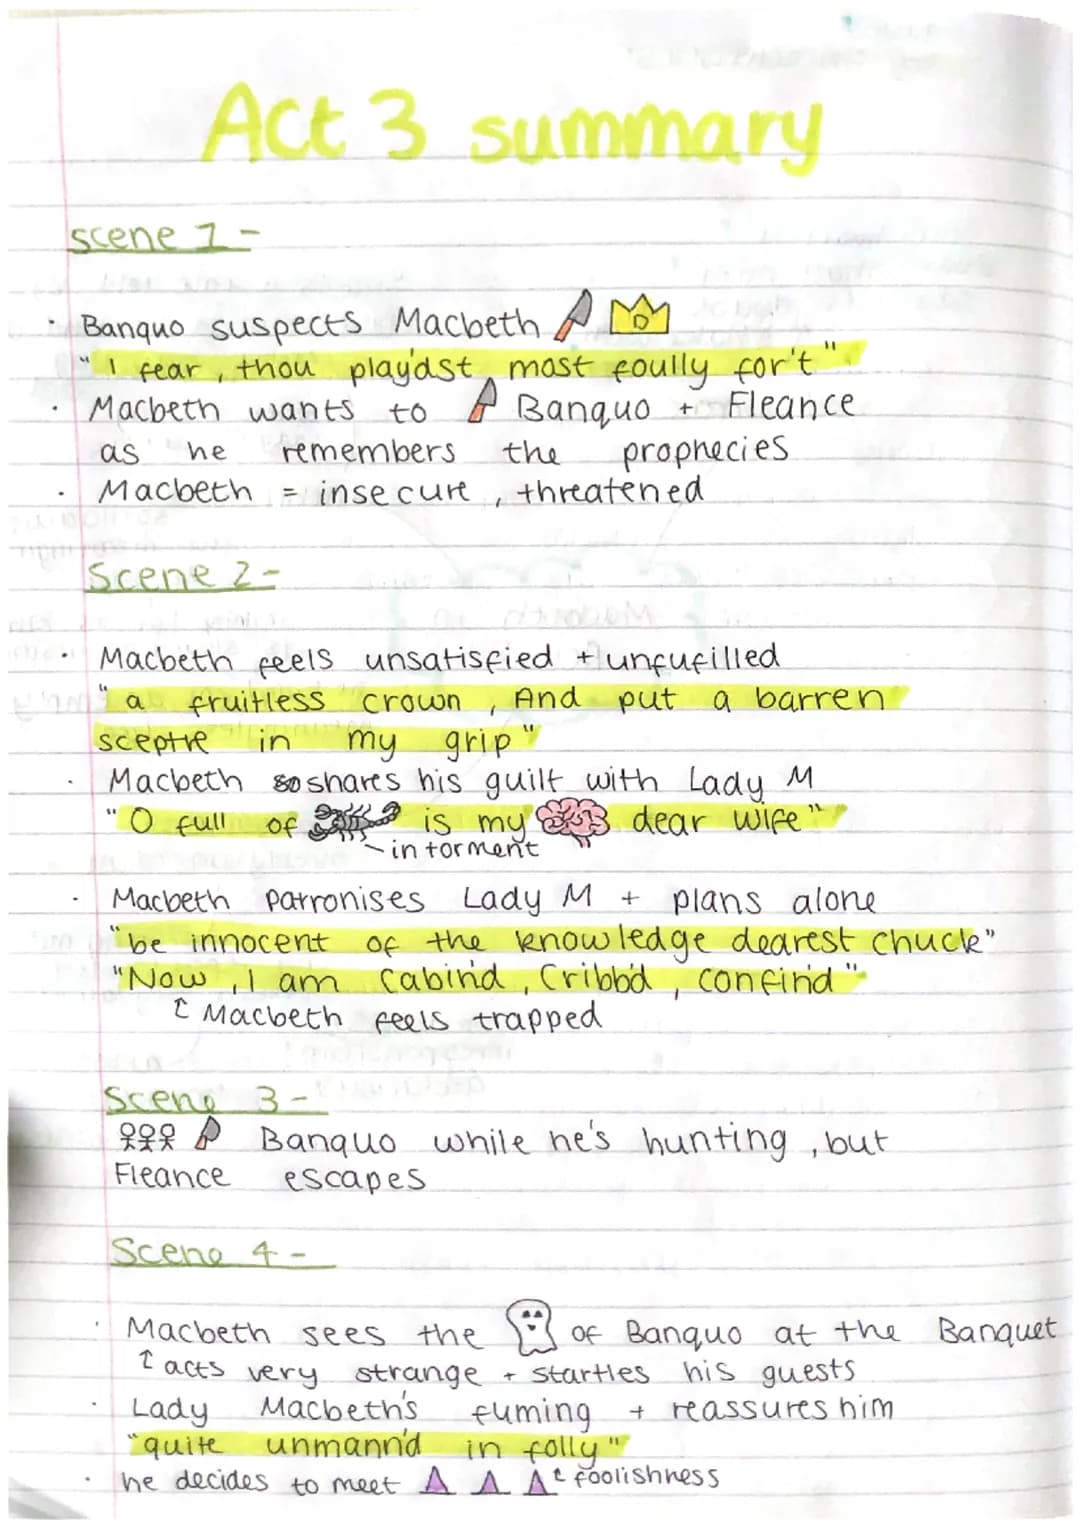 Act 3 summary
scene 1 -
· Banquo suspects Macbeth
"I fear, thou play'dst most foully for't"
· Macbeth wants to Banquo + Fleance
as he remembers the prophecies
· Macbeth = insecure, threatened
Scene 2-
· Macbeth feels unsatisfied + unfufilled
"a fruitless crown, And put a barren
sceptre in my grip"
· Macbeth so shares his guilt with Lady M
"O full of is my dear wife"
in torment
· Macbeth patronises Lady M + plans alone
"be innocent of the knowledge dearest chuck"
"Now, I am Cabin'd, Cribb'd, confin'd"
↑ Macbeth feels trapped
Scene 3-
Banquo while he's hunting, but
Fleance escapes
Scene 4-
· Macbeth sees the of Banquo at the Banquet
↑ acts very strange + startles his guests
· Lady Macbeth's fuming + reassures him
"quite unmann'd in folly"
· he decides to meet ↑ foolishness